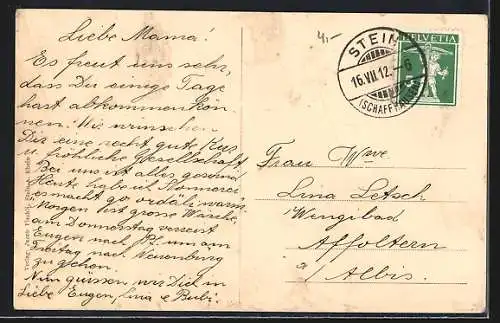 Liebe Mama!
Es freut uns sehr,
dass Du einige Tage
hast abkommen kön-
nen. Wir wünschen
Dir eine recht gute Kur
u. fröhliche Gesellschaft
Bei uns ist alles gesund
Heute habe ich
es macht go ordäli warm
Morgen ist grosse Wäsche,
am Donnerstag verreist
Eugen nach um am
Freitag nach Neuenburg
zu gehen.
Nun grüssen wir Dich in
Liebe Eugen, Lina & Bubi.
4,-
STEIN
16.VII.12.-6
(SCHAFFHAUSEN)
HELVETIA
5
Frau Wwe
Lina Letsch
Wengibad
Affoltern
a/Albis.